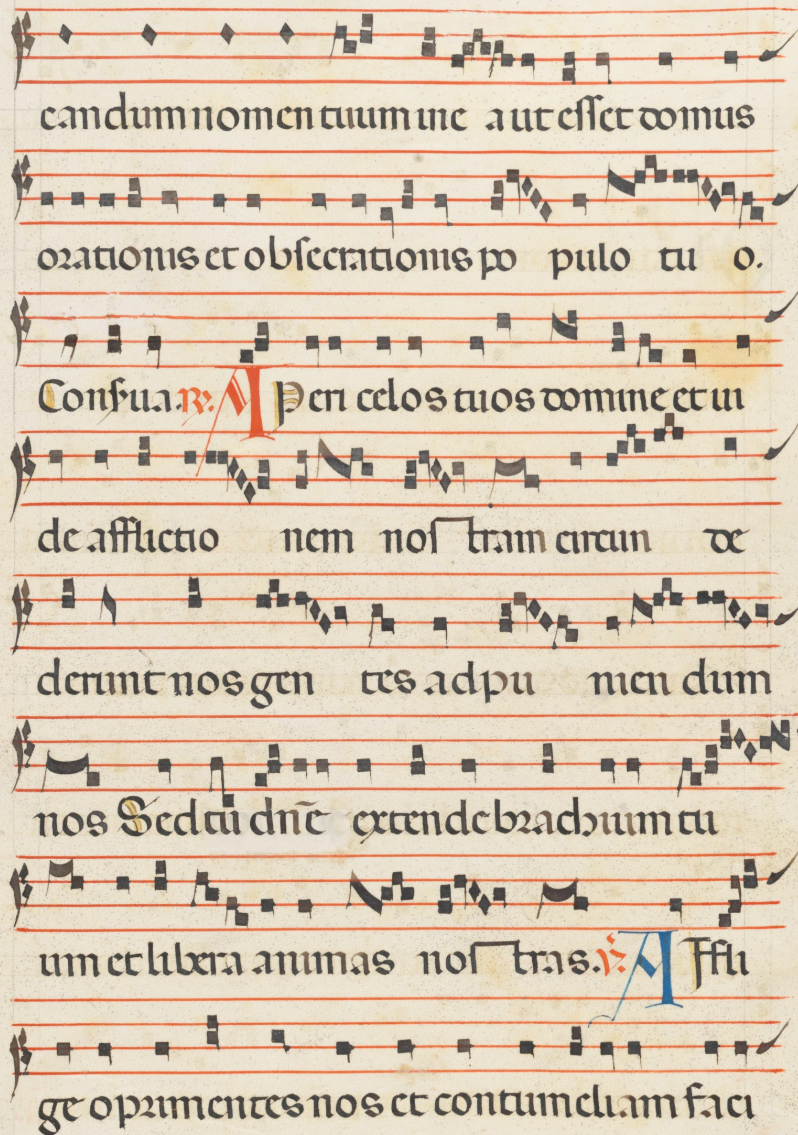 candum nomen tuum in e a ut esset domus
orationis et obsecrationis po pulo tu o.
Conserua. R. APeri celos tuos domine et ui
de afflictio nem nos tram circun de
derunt nos gen tes ad pu nien dum
nos Sed tu dñe extende brachium tu
um et libera animas nos tras. V. AFfli
ge oprimentes nos et contumeliam faci